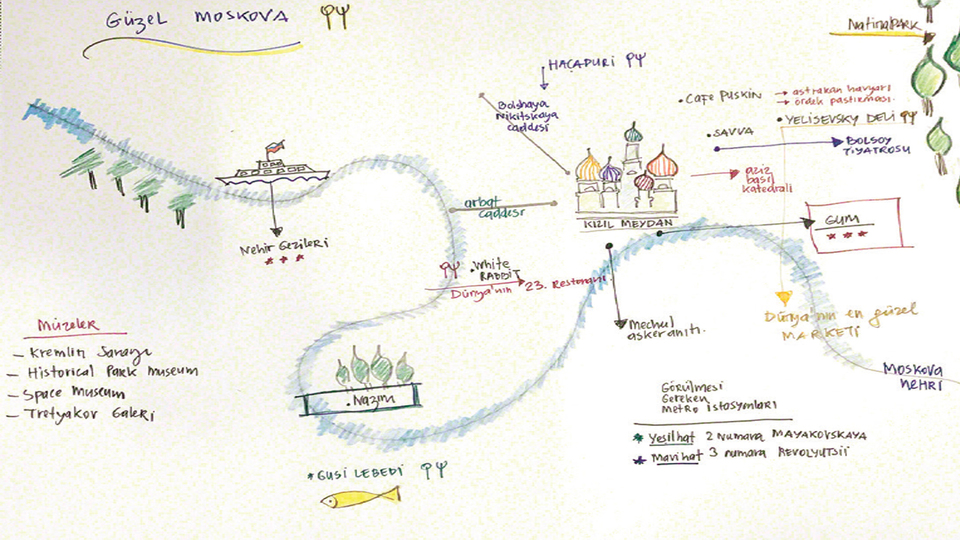 GÜZEL MOSKOVA
NatinalPARK
HAÇAPURİ
Bolshaya
Nikitskaya
caddesi
CAFE PUSKIN
astrakan havyarı
ördek pastırması.
YELİSEVSKY DELİ
SAVVA
BOLSOY
TİYATROSU
aziz
basil
katedrali
arbat
caddesi
KIZIL MEYDAN
GUM
Nehir Gezileri
White
RABBİT
Dünya'nın 23. Restoranı.
Dünya'nın en güzel
MARKETİ
Meçhul
asker anıtı.
Müzeler
- Kremlin Sarayı
- Historical Park museum
- Space museum
- Tretyakov Galeri
MOSKOVA
NEHRİ
Nazım
Görülmesi
Gereken
Metro istasyonları
Yeşilhat 2 numara MAYAKOVSKAYA
Mavihat 3 numara REVOLYUTSİİ
*GUSİ LEBEDİ